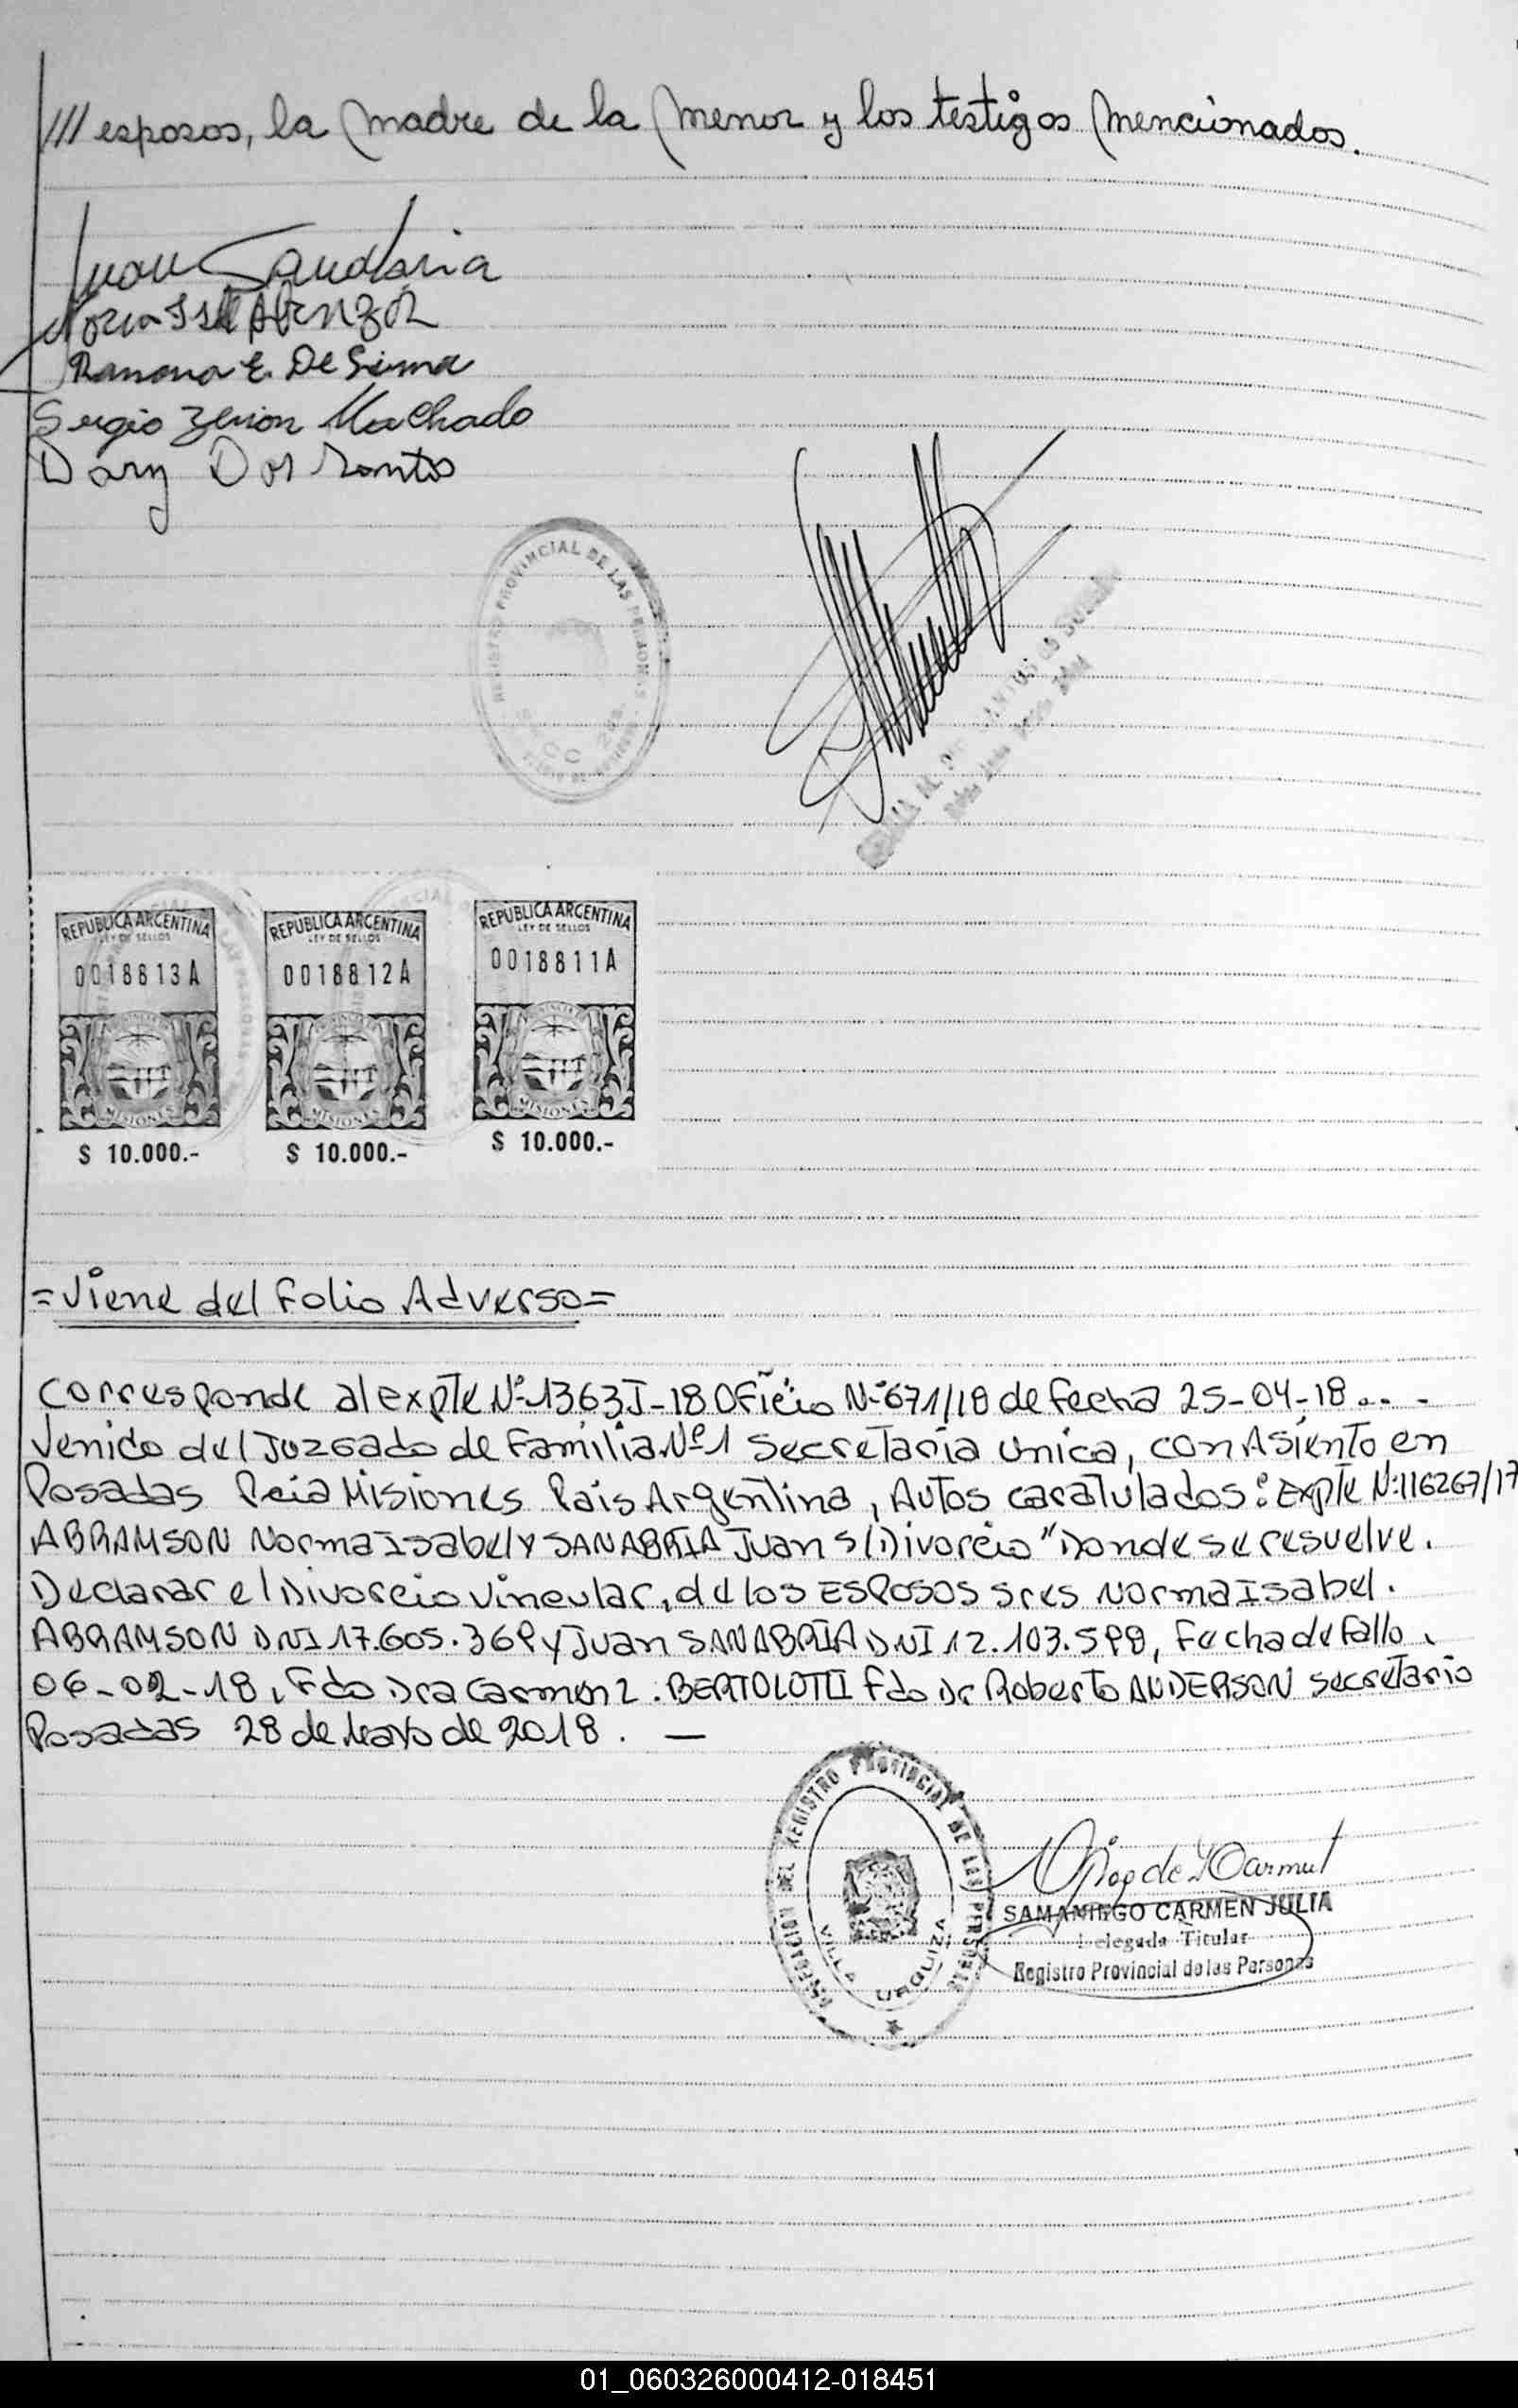 /// esposos, la madre de la menor y los testigos mencionados.
Juan Sanabria
Ramona E. De Lima
Sergio Zenon Machado
Dary Dos Santos
REGISTRO PROVINCIAL DE LAS PERSONAS
REPUBLICA ARGENTINA REPUBLICA ARGENTINA REPUBLICA ARGENTINA
LEY DE SELLOS LEY DE SELLOS LEY DE SELLOS
0018813A 0018812A 0018811A
MISIONES MISIONES MISIONES
$ 10.000.- $ 10.000.- $ 10.000.-
=Viene del Folio Adverso=
Corresponde al expte Nº 1363J-18 Oficio Nº 671/18 de fecha 25-04-18...-
Venido del Juzgado de Familia Nº1 Secretaria Unica, con Asiento en
Posadas Pcia Misiones Pais Argentina, Autos caratulados: Expte Nº:116267/17
ABRAMSON Norma Isabel y SANABRIA Juan S/Divorcio" Donde se resuelve.
Declarar el Divorcio Vincular, de los ESPOSOS Sres Norma Isabel.
ABRAMSON DNI 17.605.369 y Juan SANABRIA DNI 12.103.599, Fecha de Fallo.
06-02-18, Fdo Dra Carmen. BERTOLOTTI Fdo Dr Roberto ANDERSON Secretario
Posadas 28 de Mayo de 2018. —
DELEGACION DEL REGISTRO PROVINCIAL DE LAS PERSONAS
VILLA URQUIZA
SAMANIEGO CARMEN JULIA
Delegada Titular
Registro Provincial de las Personas
01_060326000412-018451